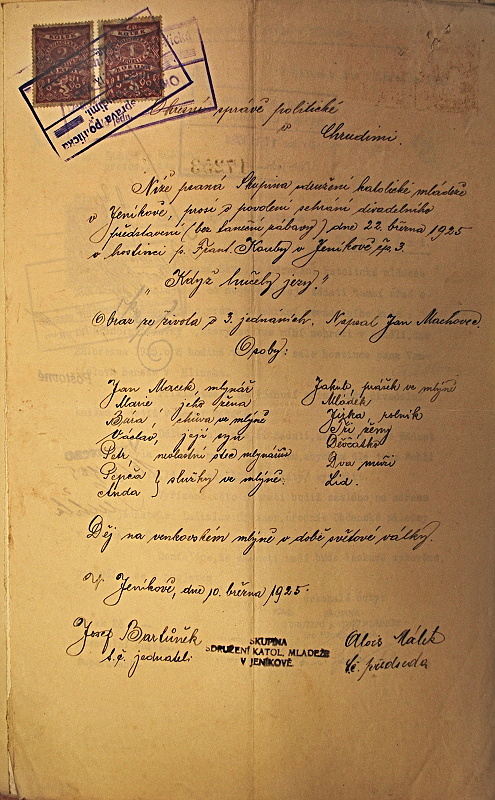 KOLEK
KOLEK
1
Okresní správě politické
v Chrudimi.
17293
Níže psaná Skupina sdružení katolické mládeže
v Jeníkově, prosí o povolení sehrání divadelního
představení (bez taneční zábavy) dne 22. března 1925
v hostinci p. Frant. Kouby v Jeníkově čp. 3.
"Když hučely jezy."
Obraz ze života o 3. jednáních. Napsal Jan Machovec.
Osoby:
Jan Macek mlynář
Marie jeho žena
Bára, chůva ve mlýně
Václav, její syn
Petr nevlastní otec mlynářův
Pepča } služky ve mlýně
Anda
Jakub, prášek ve mlýně
Mládek
Jirka, rolník
Tři ženy
Děvčátko
Dva muži
Lid.
Děj na venkovském mlýně v době světové války.
V Jeníkově, dne 10. března 1925.
Josef Bartůněk
t.č. jednatel
SKUPINA
SDRUŽENÍ KATOL. MLADEŽE
V JENÍKOVĚ.
Alois Málek
t.č. předseda